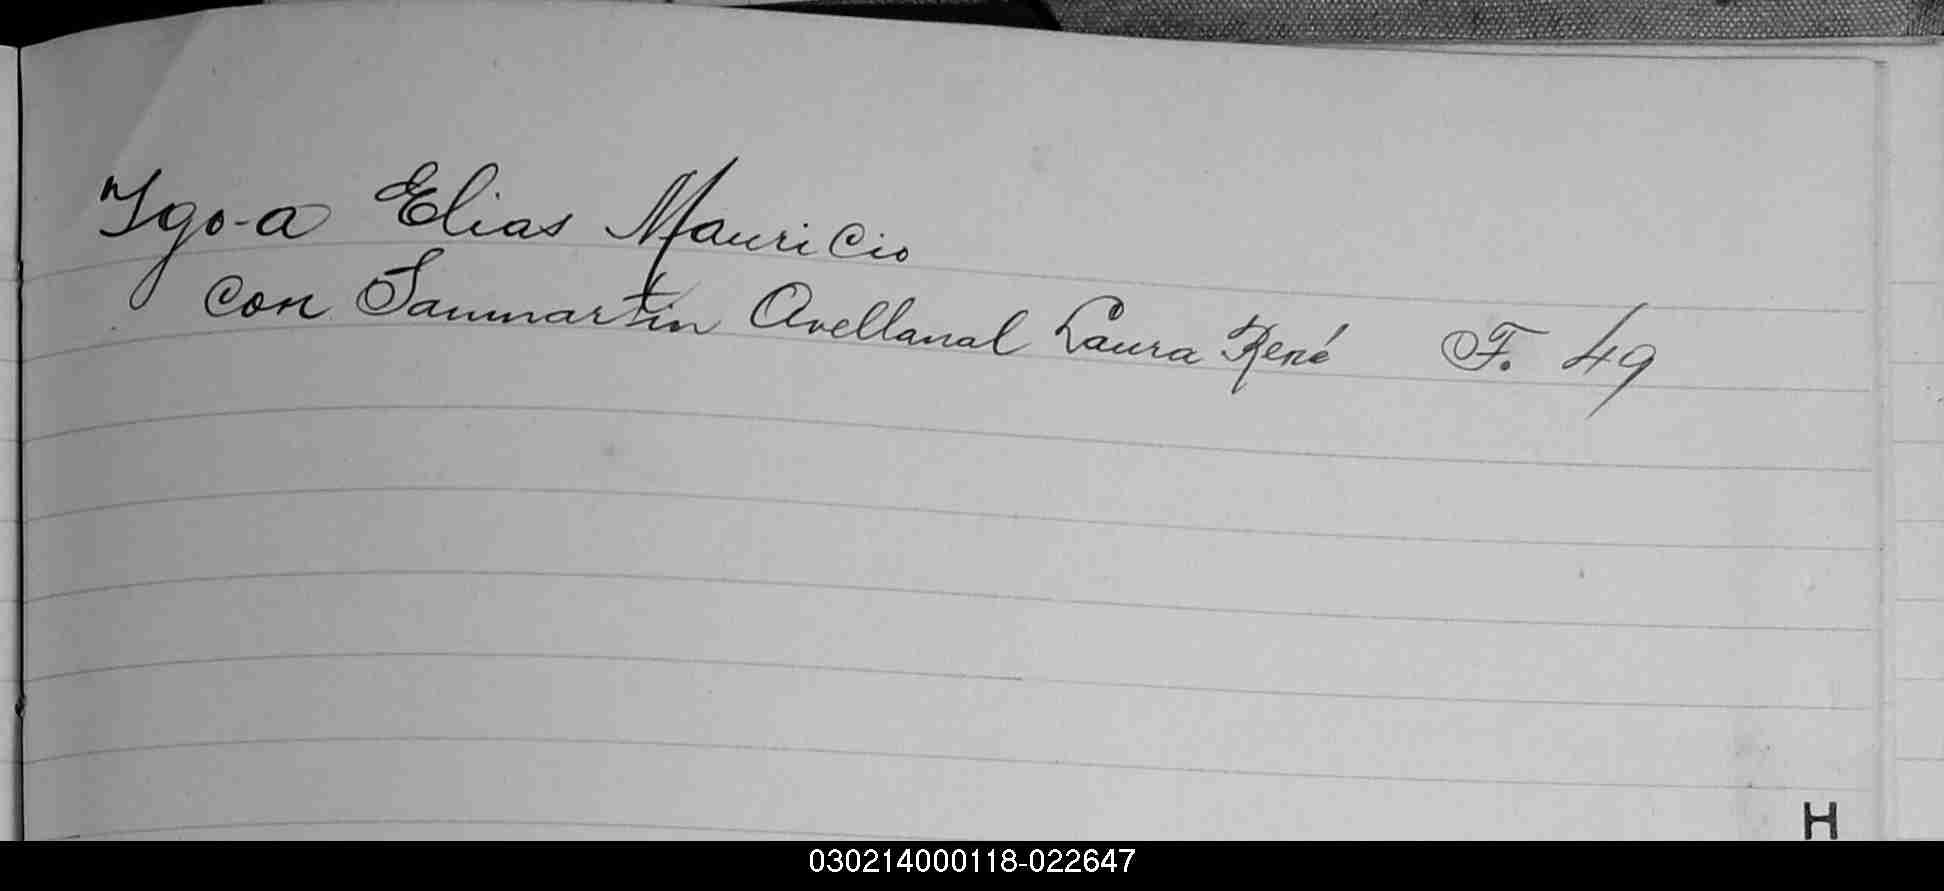 Ygo-a Elias Mauricio
con Sanmartin Avellanal Laura René F. 49
H
030214000118-022647